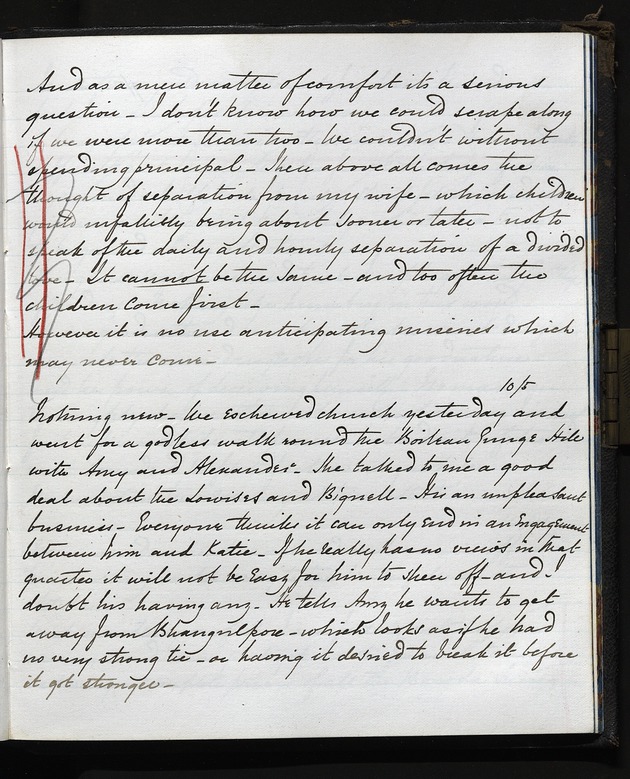 And as a mere matter of comfort its a serious
question - I don't know how we could scrape along
if we were more than two - We couldn't without
spending principal - Then above all comes the
thought of separation from my wife - which children
would infallibly bring about sooner or later - not to
speak of the daily and hourly separation of a divided
love - It cannot be the same - and too often the
children come first -
However it is no use anticipating miseries which
may never come -
10/5
Nothing new - We eschewed church yesterday and
went for a godless walk round the Hill
with Amy and Alexander - She talked to me a good
deal about the Lowises and Bignell - It is an unpleasant
business - Everyone thinks it can only end in an Engagement
between him and Katie - If he really has no views in that
quarter it will not be easy for him to sheer off - and I
doubt his having any - He tells Amy he wants to get
away from Bhaugulpore - which looks as if he had
no very strong tie - or having it desired to break it before
it got stronger -